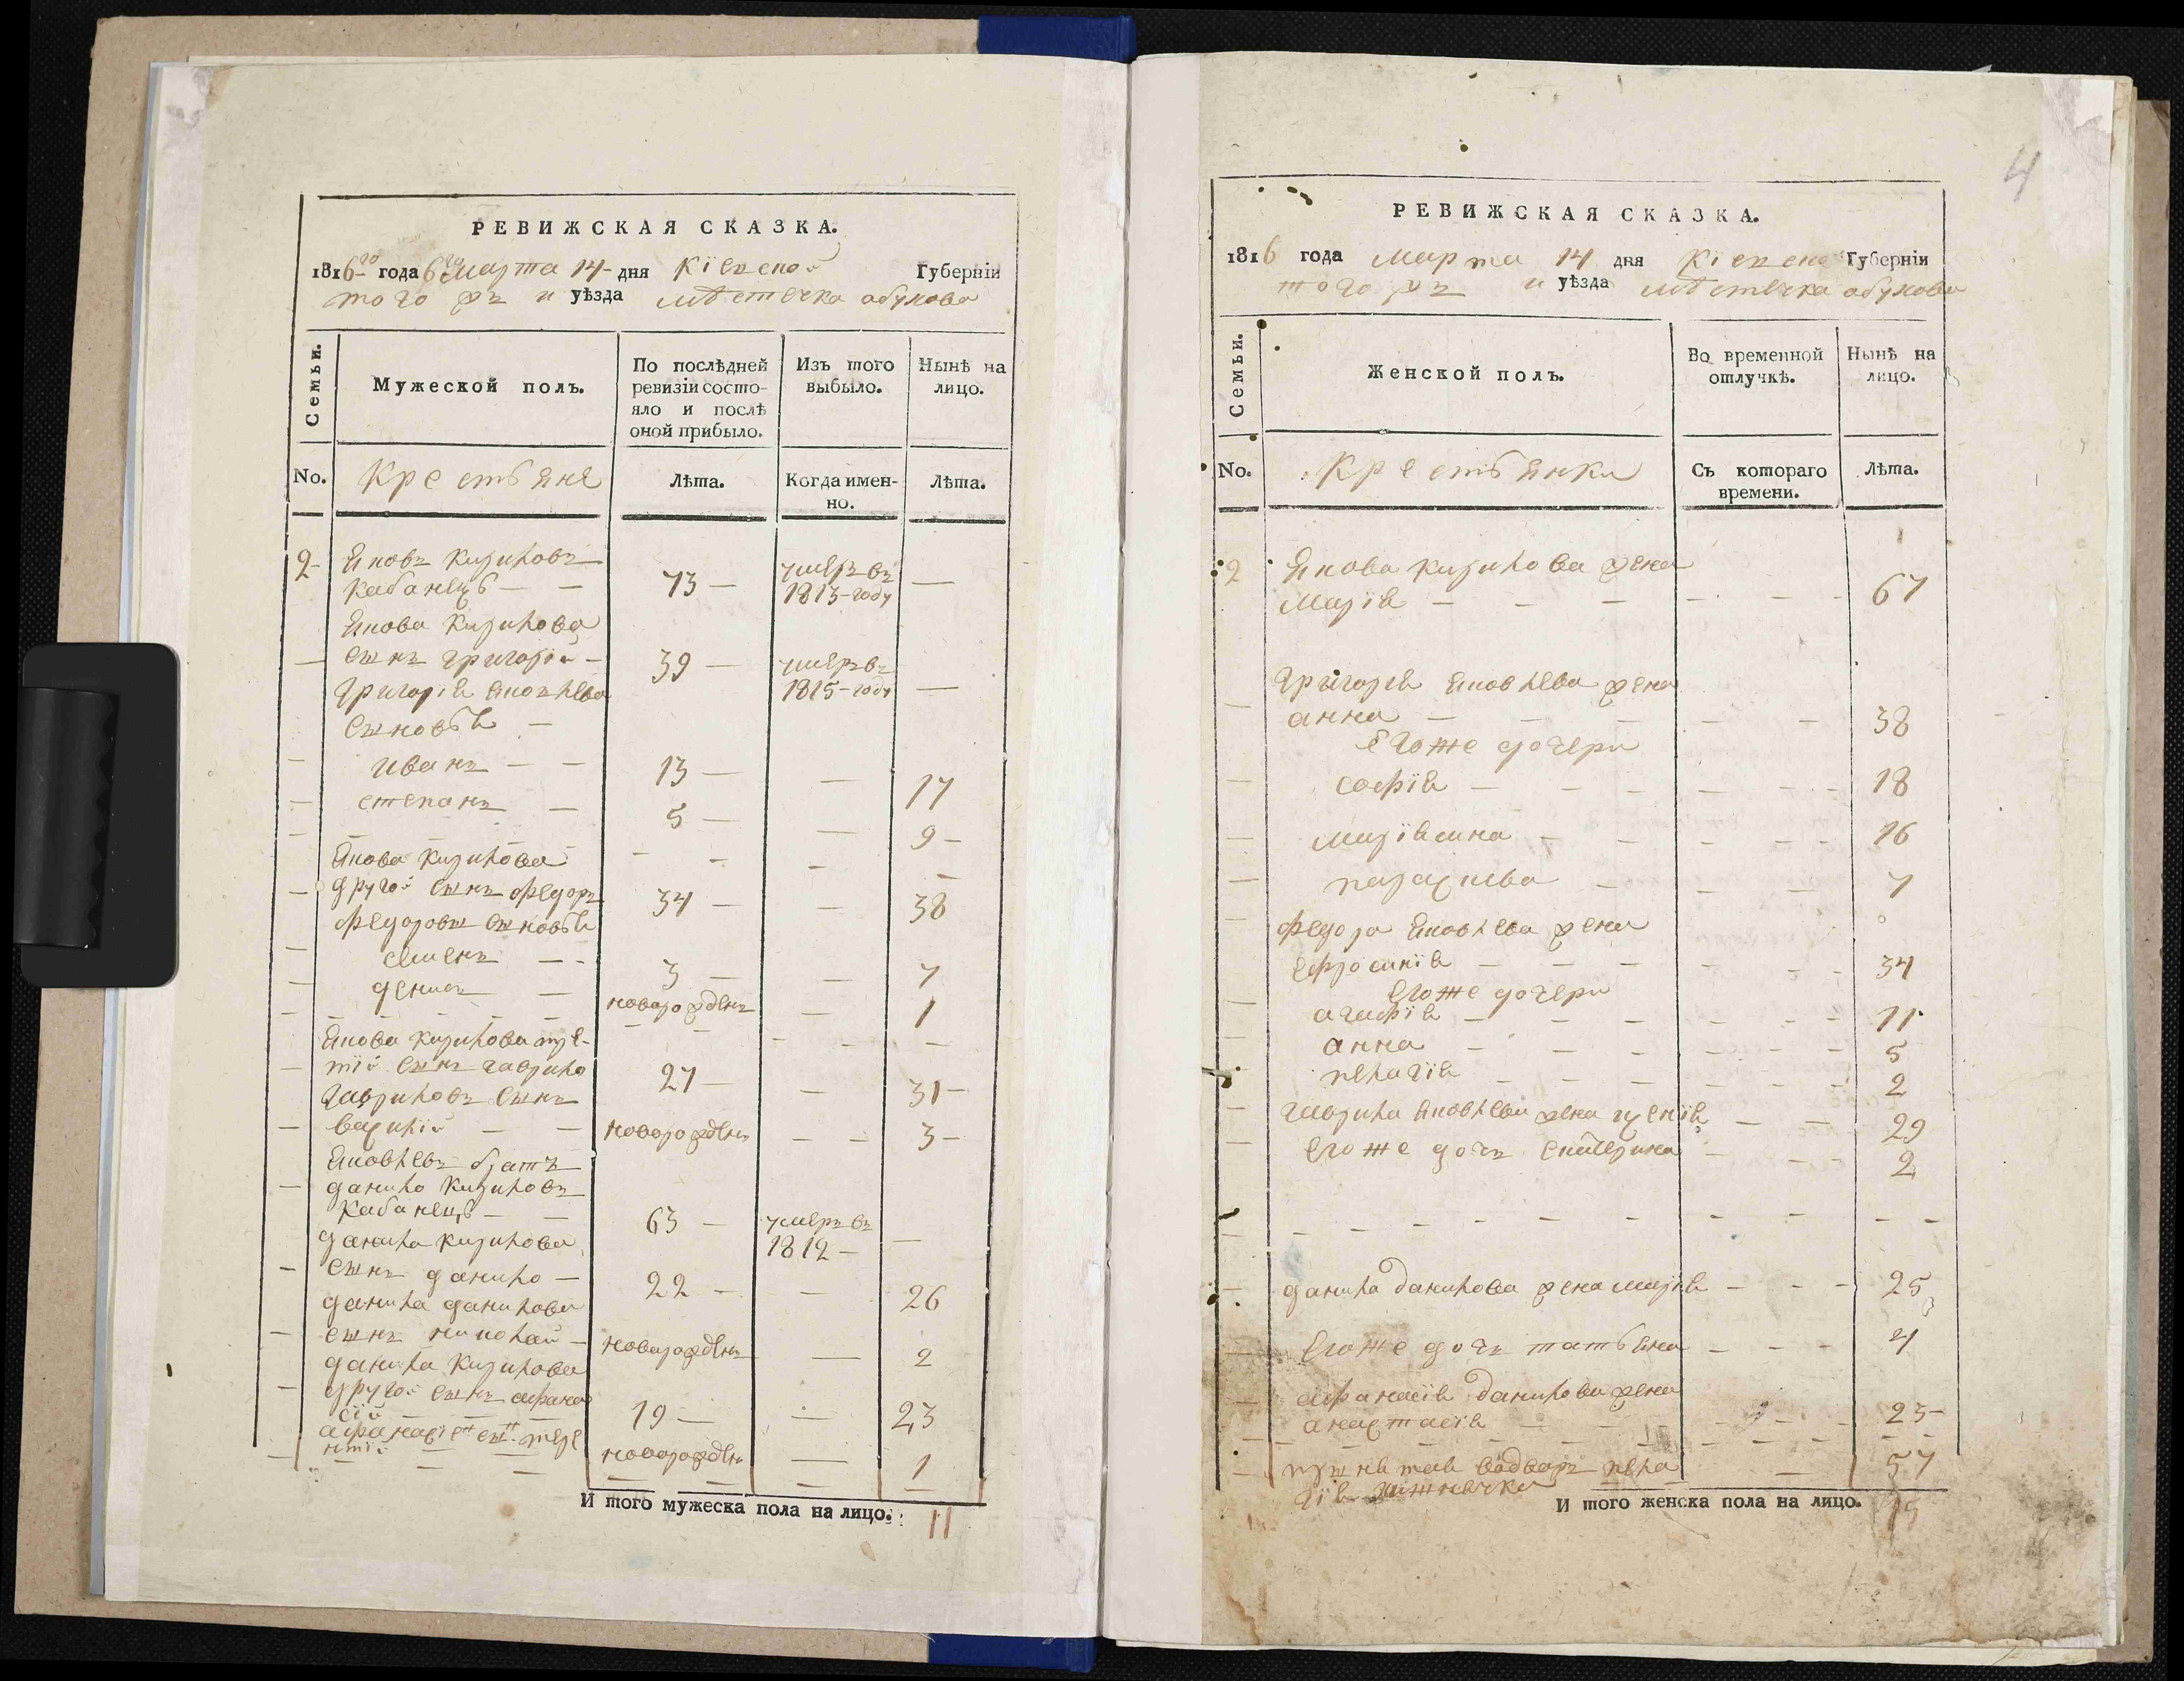 РЕВИЖСКАЯ СКАЗКА.
1816го года марта 14 дня Кіевской Губерніи
того жъ и уѣзда мѣстечка обухова
Семьи.
Мужеской полъ.
По послѣдней
ревизіи состо-
яло и послѣ
оной прибыло.
Изъ того
выбыло.
Нынѣ на
лицо.
No.
Крестьяне
Лѣта.
Когда имен-
но.
Лѣта.
2 Яковъ Кириловъ
Кабанецъ 73 умеръ въ
1813 году
Якова Кирилова
сынъ григорій 39 умеръ въ
1815 году
Григорія яковлева
сыновья
иванъ 13 17
степанъ 5 9
Якова Кирилова
другой сынъ федоръ 34 38
федоровы сыновья
семенъ 3 7
денисъ новорожденъ 1
Якова Кирилова тре-
тій сынъ гаврило 27 31
Гавриловъ сынъ
василій новорожденъ 3
Яковлевъ братъ
данило Кириловъ
Кабанецъ 63 умеръ въ
1812
данила Кирилова
сынъ данило 22 26
данила данилова
сынъ николай новорожденъ 2
данила Кирилова
другой сынъ афана
сій 19 23
сынъ тере
нтій новорожденъ 1
И того мужеска пола на лицо. 11
4
РЕВИЖСКАЯ СКАЗКА.
1816 года марта 14 дня Кіевской Губерніи
того жъ и уѣзда мѣстечка обухова
Семьи.
Женской полъ.
Во временной
отлучкѣ.
Нынѣ на
лицо.
No.
Крестьянки
Съ котораго
времени.
Лѣта.
2 Якова кирилова жена
марія 67
григорія яковлева жена
анна 38
его же дочери
софія 18
маріямна 16
параскива 7
федора яковлева жена
ефросинія 34
его же дочери
агафія 11
анна 5
пелагія 2
гаврила яковлева жена 29
его же дочь екатерина 2
данила данилова жена марія 25
его же дочь татьяна 4
афанасія данилова жена
анастасія 23
принятая водворъ пела 57
гія
И того женска пола на лицо. 15